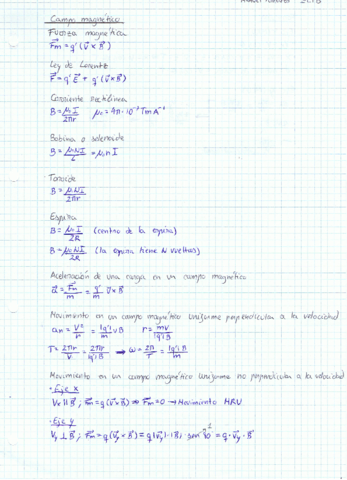 Campo magnético
Fuerza magnética
F⃗m = q'(v⃗ × B⃗)
Ley de Lorentz
F⃗ = q'E⃗ + q'(v⃗×B⃗)
Corriente rectilínea
B = μ₀I / 2πr    μ₀ = 4π · 10⁻⁷ T m A⁻¹
Bobina o solenoide
B = μ₀NI / L = μ₀ n I
Toroide
B = μ₀NI / 2πr
Espira
B = μ₀I / 2R (centro de la espira)
B = μ₀NI / 2R (la espira tiene N vueltas)
Aceleración de una carga en un campo magnético
a⃗ = F⃗m / m = q' / m v⃗ × B⃗
Movimiento en un campo magnético uniforme perpendicular a la velocidad
an = v² / r = |q'| / m vB    r = mv / |q'|B
T = 2πr / v = 2πm / |q'|B → ω = 2π / T = |q'|B / m
Movimiento en un campo magnético uniforme no perpendicular a la velocidad
· Eje x
Vx ∥ B⃗ ; F⃗m = q(v⃗×B⃗) ⇒ F⃗m = 0 → Movimiento MRU
· Eje y
Vy ⊥ B⃗ ; F⃗m = q(v⃗y × B⃗) = q|v⃗y| · |B⃗| sen 90 = q · v⃗y · B⃗